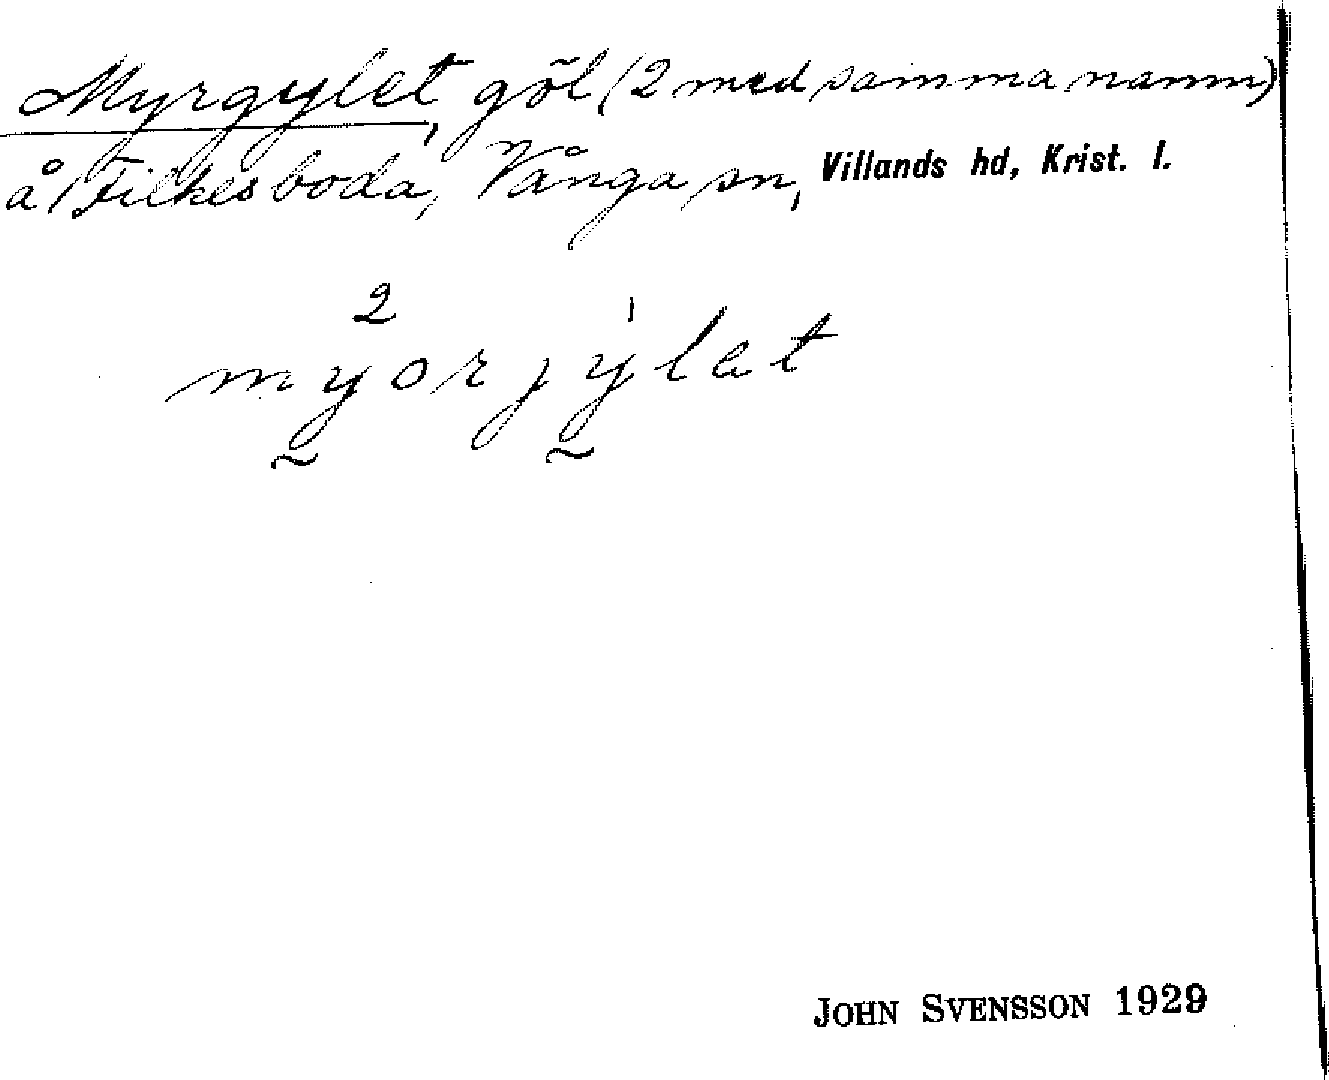 Myrgylet, göl (2 med samma namn)
å Filkesboda, Vånga sn, Villands hd, Krist. l.
2 1
myorjylet
JOHN SVENSSON 1929